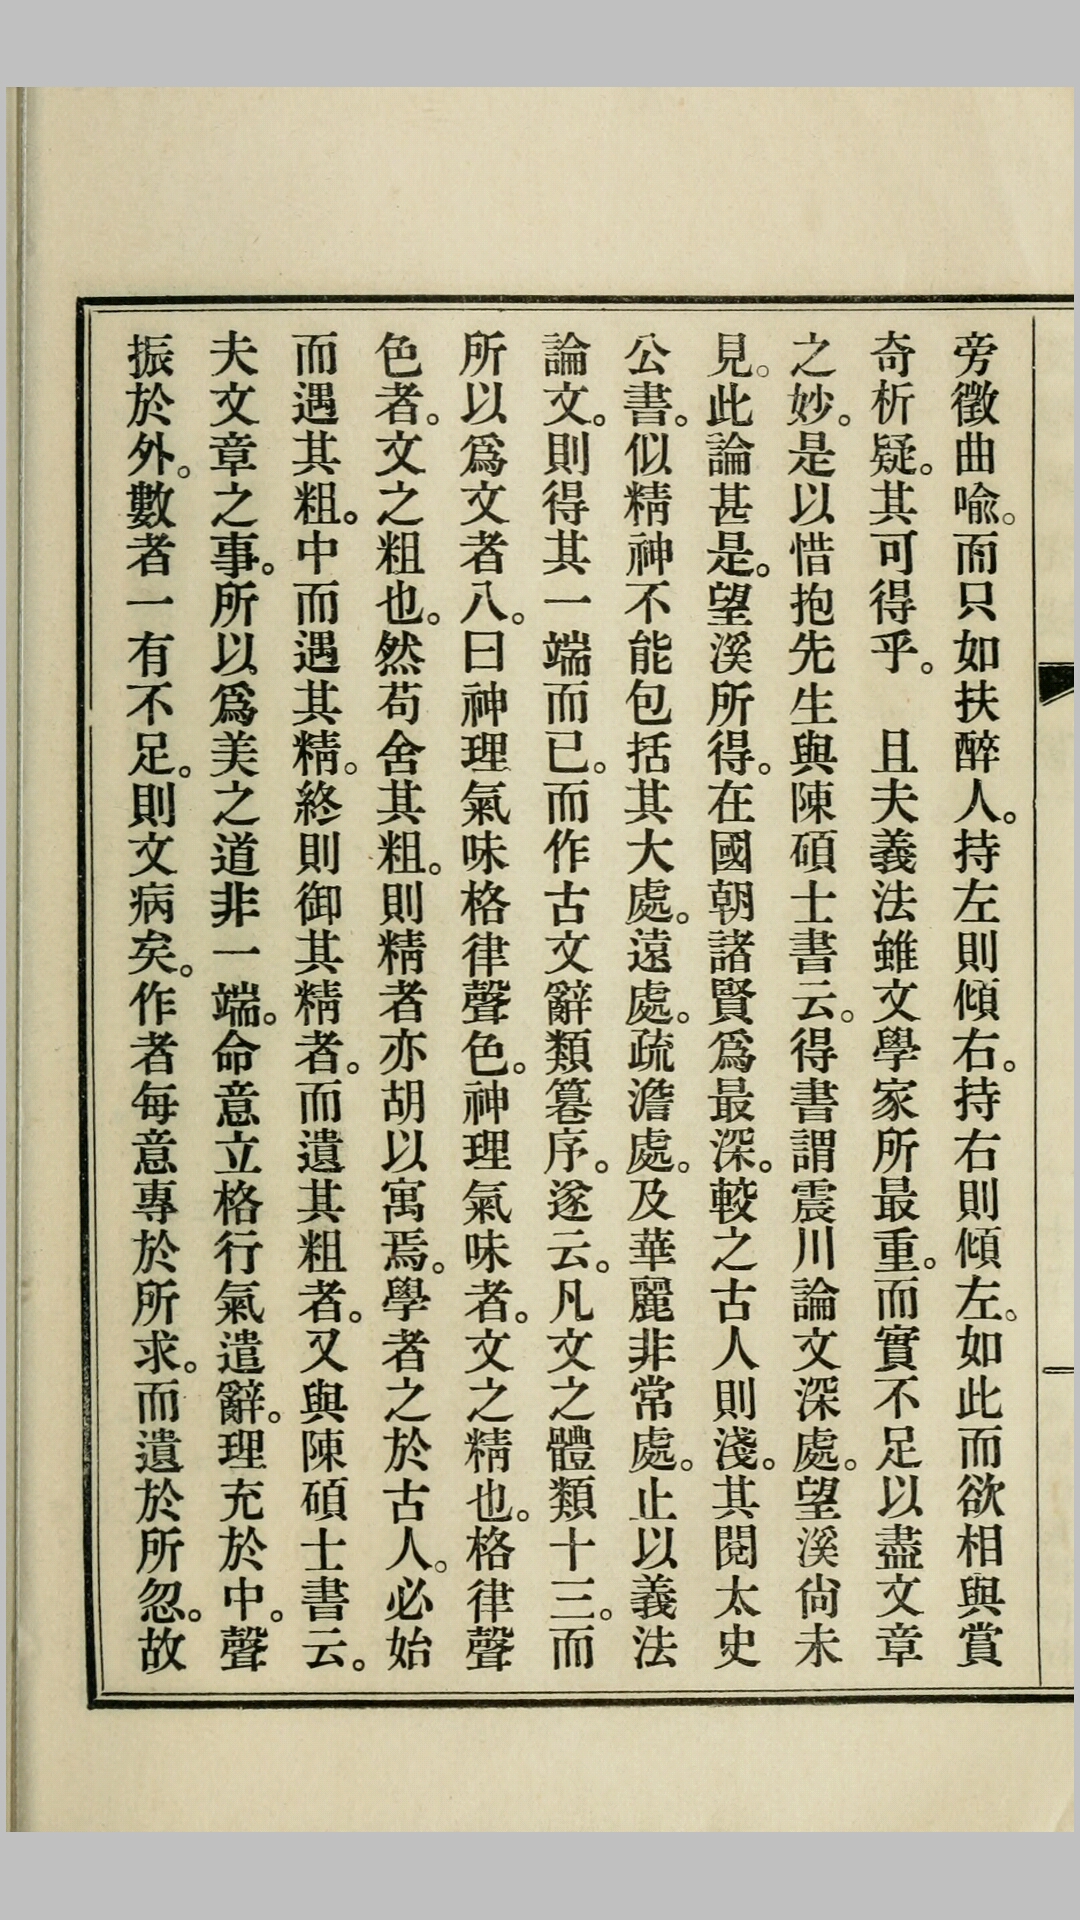 旁徵曲喩。而只如扶醉人。持左則傾右。持右則傾左。如此而欲相與賞
奇析疑。其可得乎。　且夫義法雖文學家所最重。而實不足以盡文章
之妙。是以惜抱先生與陳碩士書云。得書謂震川論文深處。望溪尙未
見。此論甚是。望溪所得。在國朝諸賢爲最深。較之古人則淺。其閱太史
公書。似精神不能包括其大處。遠處。疏澹處。及華麗非常處。止以義法
論文。則得其一端而已。而作古文辭類篹序。遂云。凡文之體類十三。而
所以爲文者八。曰神理氣味格律聲色。神理氣味者。文之精也。格律聲
色者。文之粗也。然苟舍其粗。則精者亦胡以寓焉。學者之於古人。必始
而遇其粗。中而遇其精。終則御其精者。而遺其粗者。又與陳碩士書云。
夫文章之事。所以爲美之道非一端。命意立格行氣遣辭。理充於中。聲
振於外。數者一有不足。則文病矣。作者每意專於所求。而遺於所忽。故